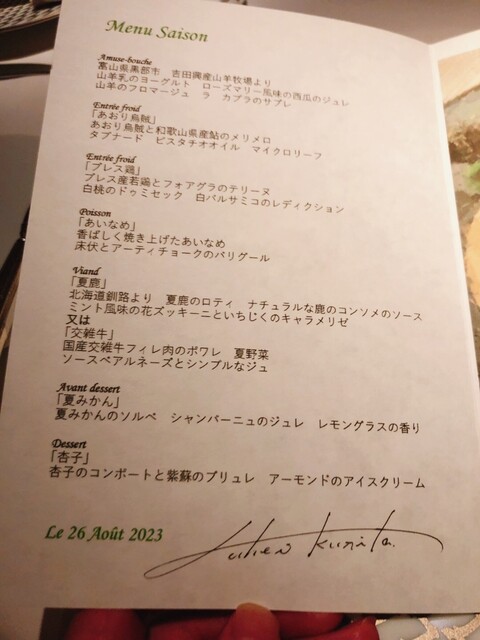 Menu Saison
Amuse-bouche
富山県黒部市　吉田興産山羊牧場より
山羊乳のヨーグルト　ローズマリー風味の西瓜のジュレ
山羊のフロマージュ　ラ　カブラのサブレ
Entrée froid
「あおり烏賊」
あおり烏賊と和歌山県産鮎のメリメロ
タプナード　ピスタチオオイル　マイクロリーフ
Entrée froid
「ブレス鶏」
ブレス産若鶏とフォアグラのテリーヌ
白桃のドゥミセック　白バルサミコのレディクション
Poisson
「あいなめ」
香ばしく焼き上げたあいなめ
床伏とアーティチョークのバリグール
Viand
「夏鹿」
北海道釧路より　夏鹿のロティ　ナチュラルな鹿のコンソメのソース
ミント風味の花ズッキーニといちじくのキャラメリゼ
又は
「交雑牛」
国産交雑牛フィレ肉のポワレ　夏野菜
ソースベアルネーズとシンプルなジュ
Avant dessert
「夏みかん」
夏みかんのソルベ　シャンパーニュのジュレ　レモングラスの香り
Dessert
「杏子」
杏子のコンポートと紫蘇のブリュレ　アーモンドのアイスクリーム
Le 26 Août 2023